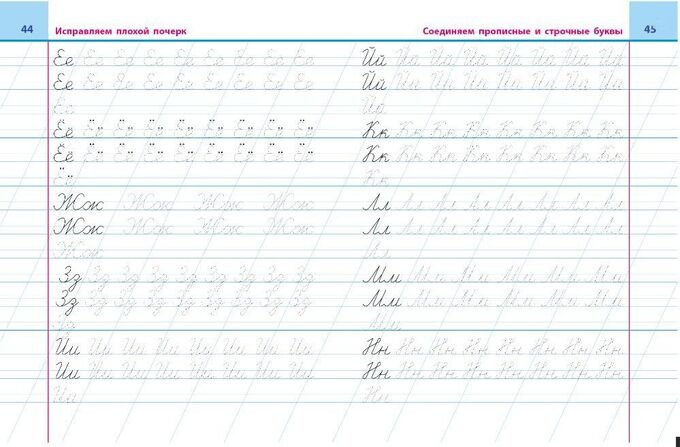 44
Исправляем плохой почерк
Ее Ее Ее Ее Ее Ее Ее Ее Ее
Ее Ее Ее Ее Ее Ее Ее Ее Ее
Ее
Ёё Ёё Ёё Ёё Ёё Ёё Ёё Ёё Ёё
Ёё Ёё Ёё Ёё Ёё Ёё Ёё Ёё Ёё
Ёё
Жж Жж Жж Жж
Жж Жж Жж Жж
Жж
Зз Зз Зз Зз Зз Зз Зз Зз Зз
Зз Зз Зз Зз Зз Зз Зз Зз Зз
Зз
Ии Ии Ии Ии Ии Ии Ии Ии
Ии Ии Ии Ии Ии Ии Ии Ии
Ии
Соединяем прописные и строчные буквы
45
Йй Йй Йй Йй Йй Йй Йй Йй
Йй Йй Йй Йй Йй Йй Йй Йй
Йй
Кк Кк Кк Кк Кк Кк Кк Кк
Кк Кк Кк Кк Кк Кк Кк Кк
Кк
Лл Лл Лл Лл Лл Лл Лл Лл
Лл Лл Лл Лл Лл Лл Лл Лл
Лл
Мм Мм Мм Мм Мм Мм
Мм Мм Мм Мм Мм Мм
Мм
Нн Нн Нн Нн Нн Нн Нн Нн
Нн Нн Нн Нн Нн Нн Нн Нн
Нн